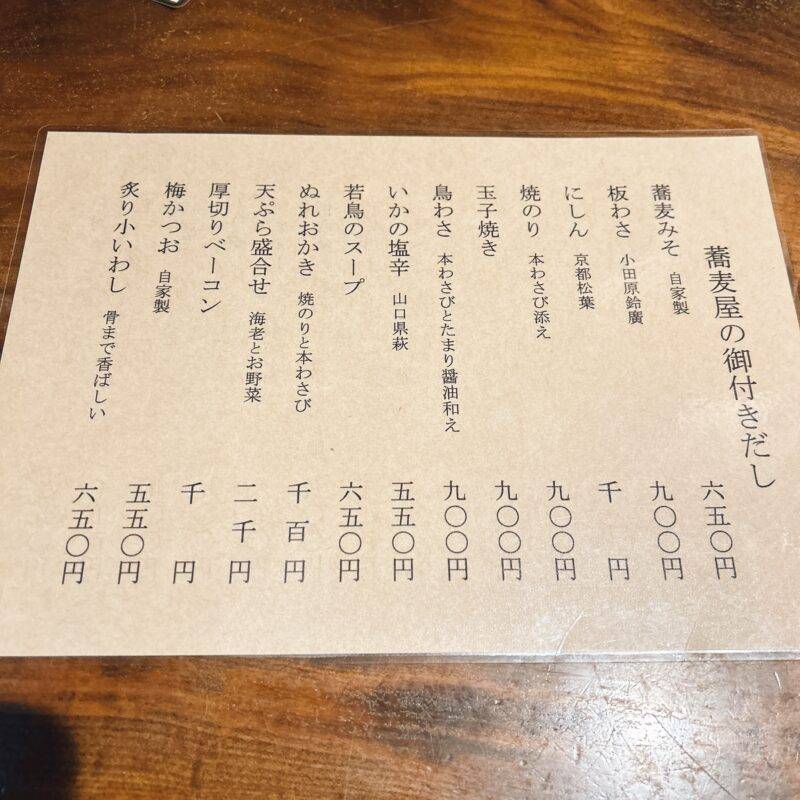 蕎麦屋の御付きだし
蕎麦みそ 自家製 六五〇円
板わさ 小田原鈴廣 九〇〇円
にしん 京都松葉 千円
焼のり 本わさび添え 九〇〇円
玉子焼き 九〇〇円
鳥わさ 本わさびとたまり醤油和え 九〇〇円
いかの塩辛 山口県萩 五五〇円
若鳥のスープ 六五〇円
ぬれおかき 焼のりと本わさび 千百円
天ぷら盛合せ 海老とお野菜 二千円
厚切りベーコン 千円
梅かつお 自家製 五五〇円
炙り小いわし 骨まで香ばしい 六五〇円